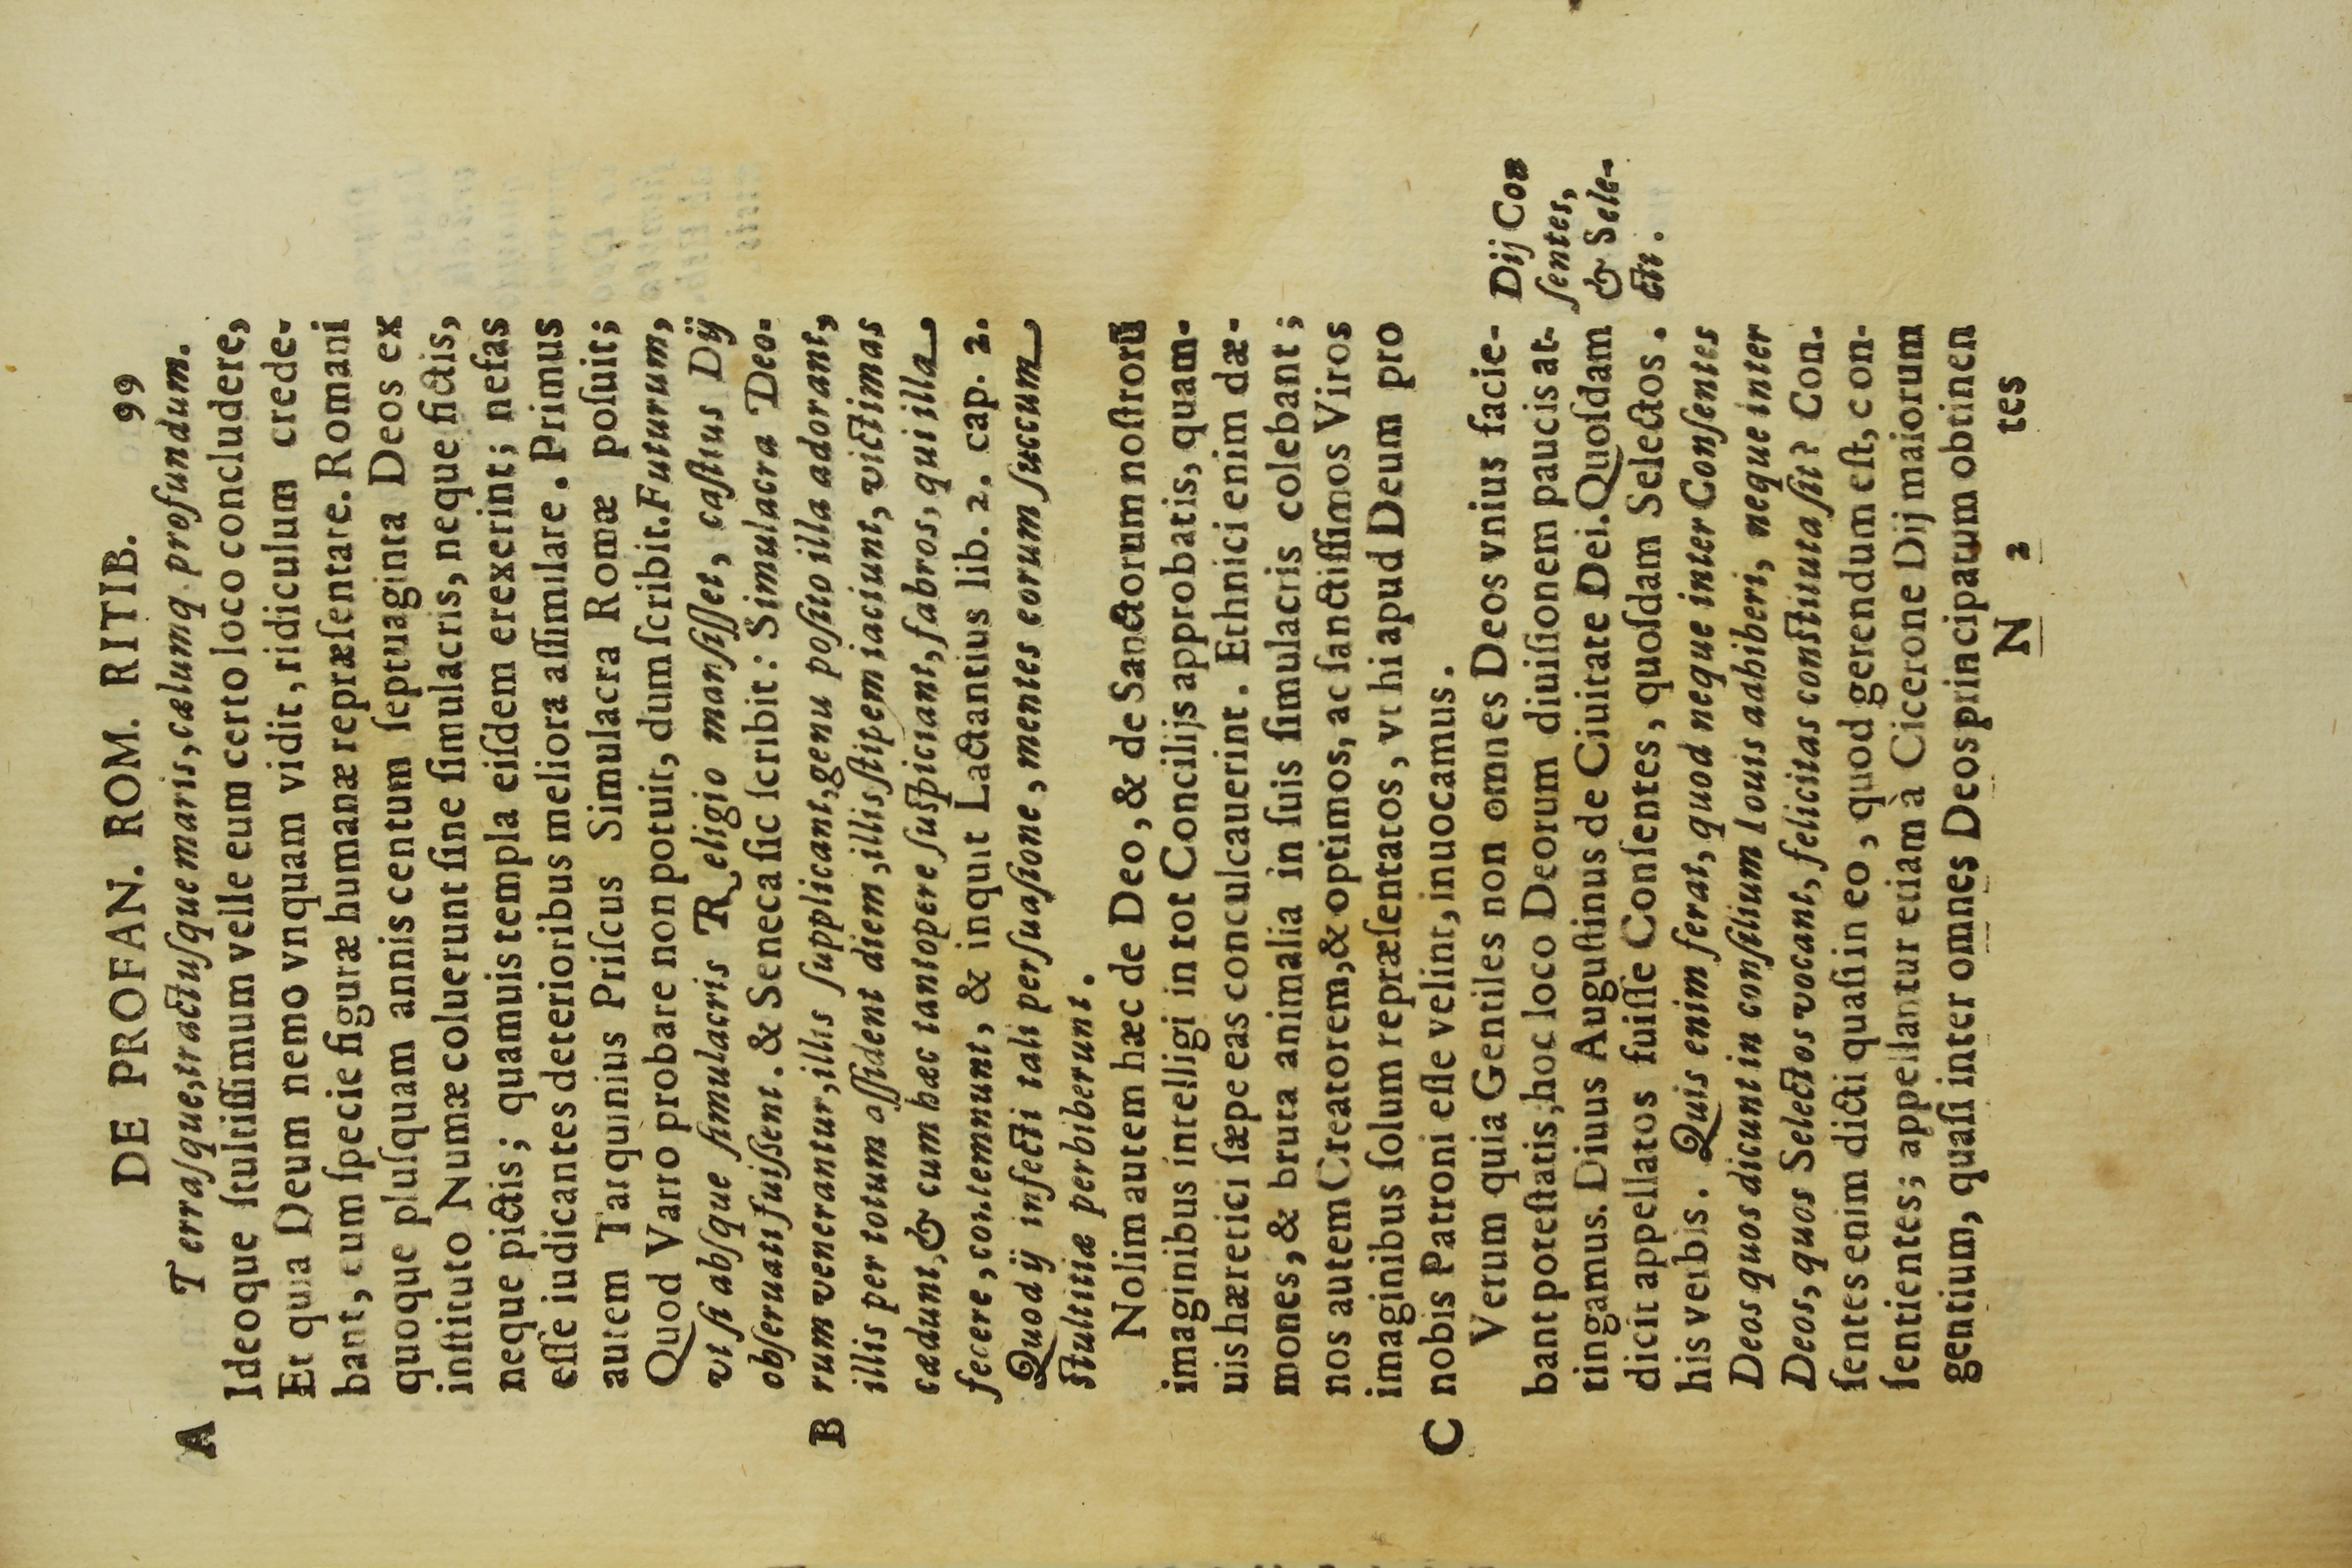 DE PROFAN. ROM. RITIB. 99
A Terrasque, tractusque maris, cælumq. profundum.
Ideoque ſtultiſſimum velle eum certo loco concludere,
Et quia Deum nemo vnquam vidit, ridiculum crede-
bant, cum ſpecie figuræ humanæ repræſentare. Romani
quoque pluſquam annis centum ſeptuaginta Deos ex
inſtituto Numæ coluerunt ſine ſimulacris, neque fictis,
neque pictis; quamuis templa eiſdem erexerint; nefas
eſſe iudicantes deterioribus meliora aſſimilare. Primus
autem Tarquinius Priſcus Simulacra Romæ poſuit;
Quod Varro probare non potuit, dum ſcribit. Futurum,
vt ſi abſque ſimulacris Religio manſiſſet, caſtius Dij
obſeruati fuiſſent. & Seneca ſic ſcribit: Simulacra Deo-
B rum venerantur, illis ſupplicant, genu poſito illa adorant,
illis per totum aſſident diem, illis ſtipem iaciunt, victimas
cædunt, & cum hæc tantopere ſuſpiciant, fabros, qui illa
fecere, contemnunt, & inquit Lactantius lib. 2. cap. 2.
Quod ij infecti tali perſuaſione, mentes eorum ſuccum
ſtultitiæ perbiberunt.
Nolim autem hæc de Deo, & de Sanctorum noſtrorū
imaginibus intelligi in tot Concilijs approbatis, quam-
uis hæretici ſæpe eas conculcauerint. Ethnici enim dæ-
mones, & bruta animalia in ſuis ſimulacris colebant;
nos autem Creatorem, & optimos, ac ſanctiſſimos Viros
imaginibus ſolum repræſentatos, vt hi apud Deum pro
C nobis Patroni eſſe velint, inuocamus.
Verum quia Gentiles non omnes Deos vnius facie-
bant poteſtatis; hoc loco Deorum diuiſionem paucis at-
tingamus. Diuus Auguſtinus de Ciuitate Dei. Quoſdam
dicit appellatos fuiſſe Conſentes, quoſdam Selectos.
his verbis. Quis enim ferat, quod neque inter Conſentes
Deos quos dicunt in conſilium Iouis adhiberi, neque inter
Deos, quos Selectos vocant, felicitas conſtituta ſit? Con-
ſentes enim dicti quaſi in eo, quod gerendum eſt, con-
ſentientes; appellantur etiam à Cicerone Dij maiorum
gentium, quaſi inter omnes Deos principatum obtinen
N 2 tes
Dij Con
ſentes,
& Sele-
cti.